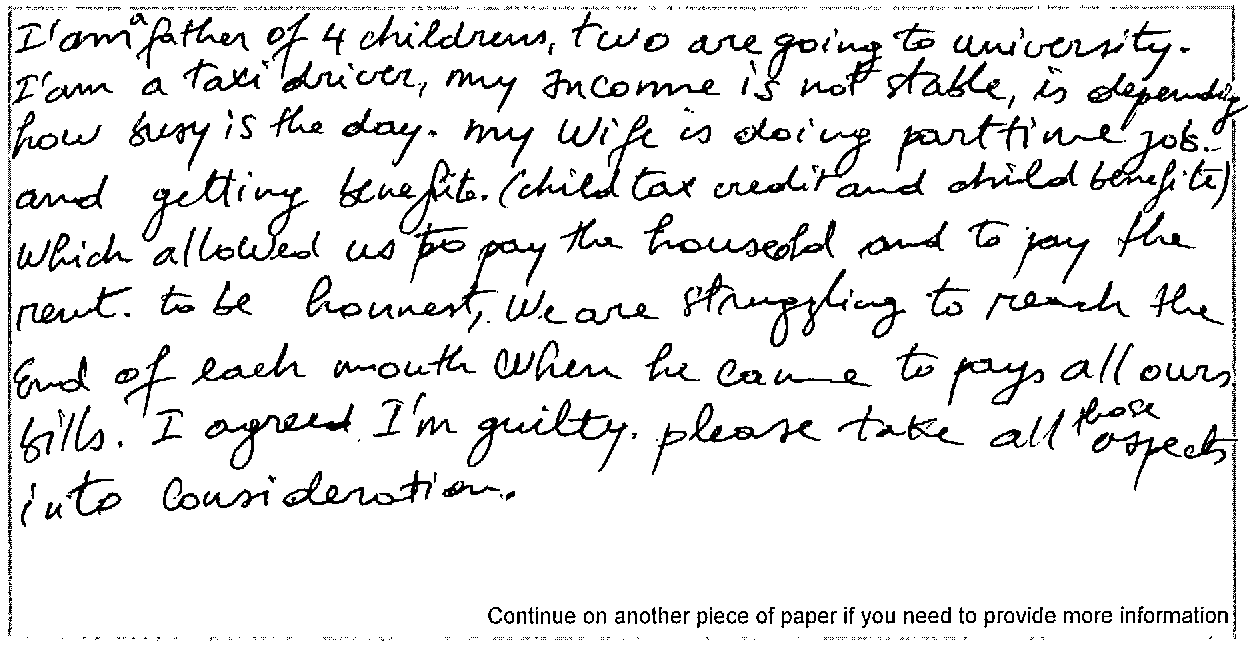 I'am a father of 4 childrens, two are going to university.
I'am a taxi driver, my income is not stable, is depending
how busy is the day. my wife is doing parttime job.
and getting benefits. (child tax credit and child benefits)
which allowed us to pay the housedd and to pay the
rent. to be hounest, we are struggling to reach the
End of each month when he came to pays all ours
bills. I agreed I'm guilty. please take all those aspects
into consideration.
Continue on another piece of paper if you need to provide more information